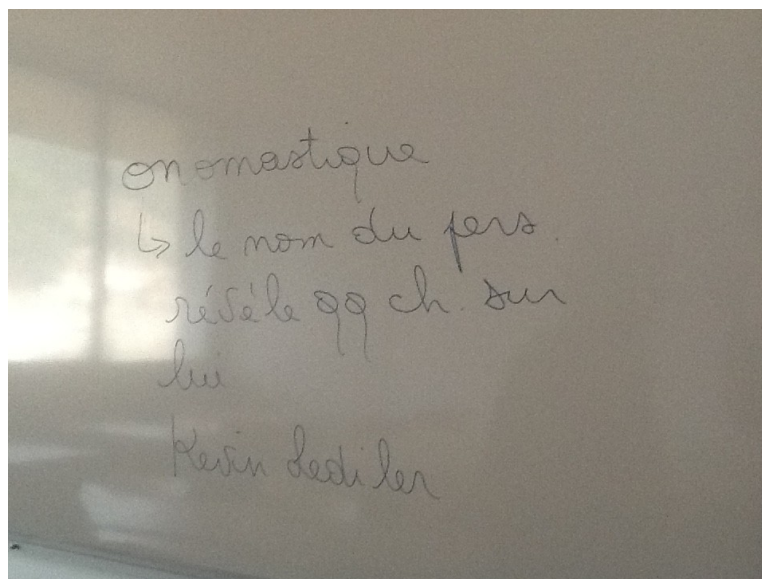 onomastique
↳ le nom du pers.
révéle qq ch. sur
lui
Kevin Lediler